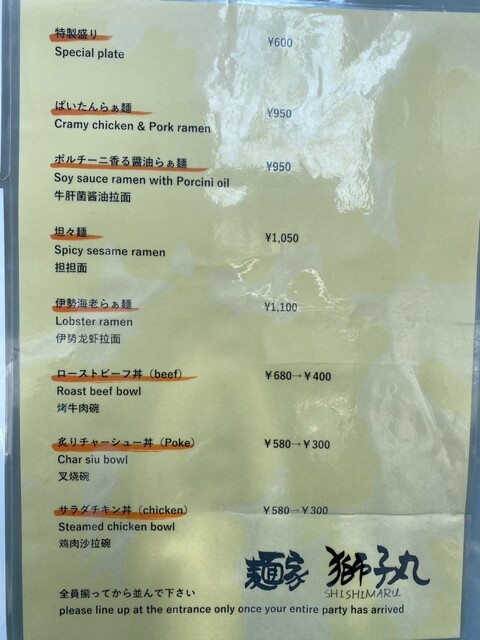 特製盛り ¥600
Special plate
ぱいたんらぁ麺 ¥950
Cramy chicken & Pork ramen
ポルチーニ香る醤油らぁ麺 ¥950
Soy sauce ramen with Porcini oil
牛肝菌酱油拉面
坦々麺 ¥1,050
Spicy sesame ramen
担担面
伊勢海老らぁ麺 ¥1,100
Lobster ramen
伊势龙虾拉面
ローストビーフ丼（beef） ￥680→￥400
Roast beef bowl
烤牛肉碗
炙りチャーシュー丼（Poke） ￥580→￥300
Char siu bowl
叉烧碗
サラダチキン丼（chicken） ￥580→￥300
Steamed chicken bowl
鸡肉沙拉碗
麺家 獅子丸
SHISHIMARU
全員揃ってから並んで下さい
please line up at the entrance only once your entire party has arrived